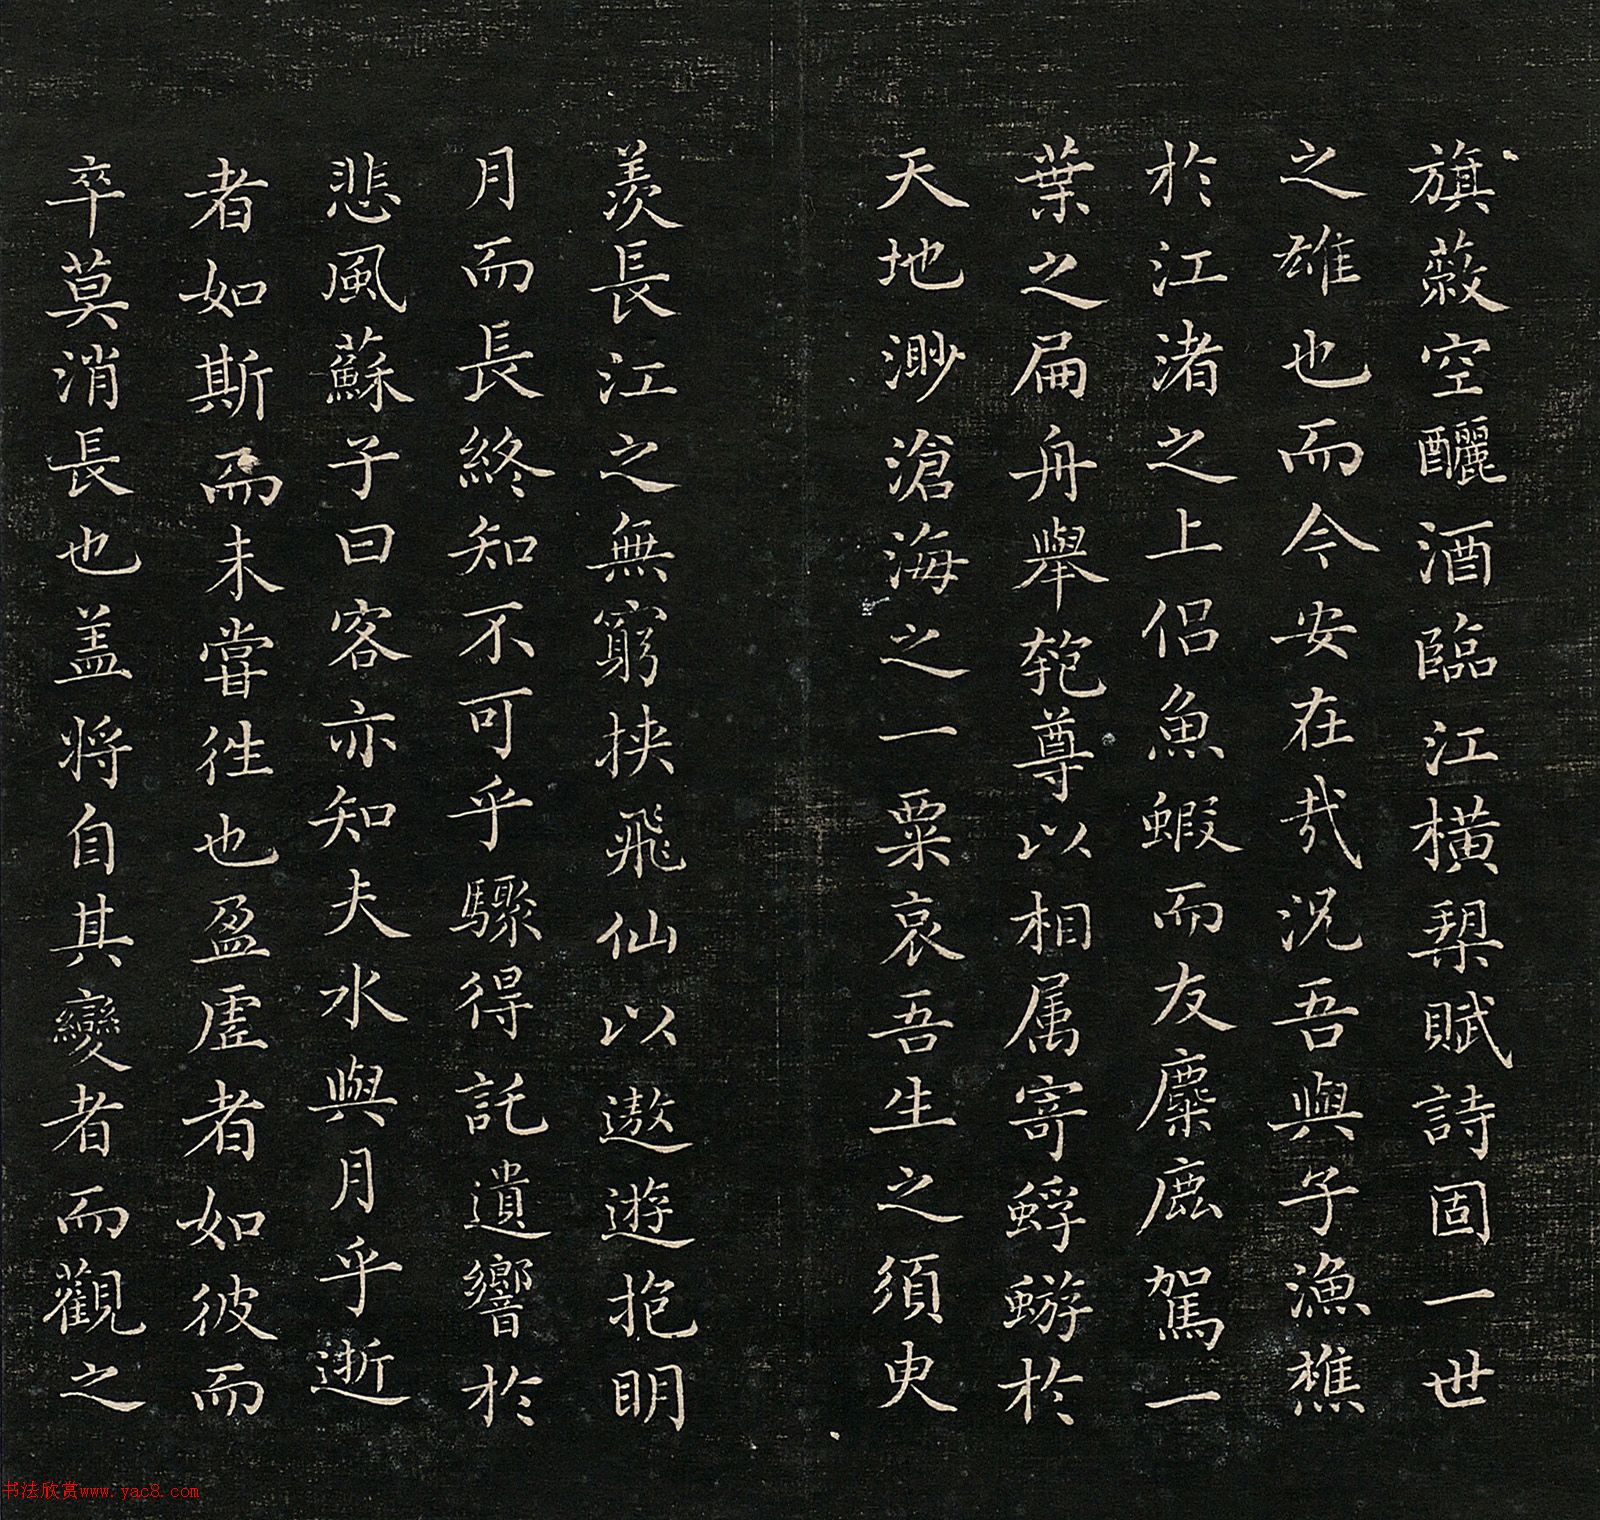 旗蔽空釃酒臨江橫槊賦詩固一世
之雄也而今安在哉況吾與子漁樵
於江渚之上侶魚蝦而友麋鹿駕一
葉之扁舟舉匏尊以相属寄蜉蝣於
天地渺滄海之一粟哀吾生之須臾
羨長江之無窮挾飛仙以遨遊抱明
月而長終知不可乎驟得託遺響於
悲風蘇子曰客亦知夫水與月乎逝
者如斯而未嘗往也盈虛者如彼而
卒莫消長也盖將自其變者而觀之
书法欣赏www.yac8.com